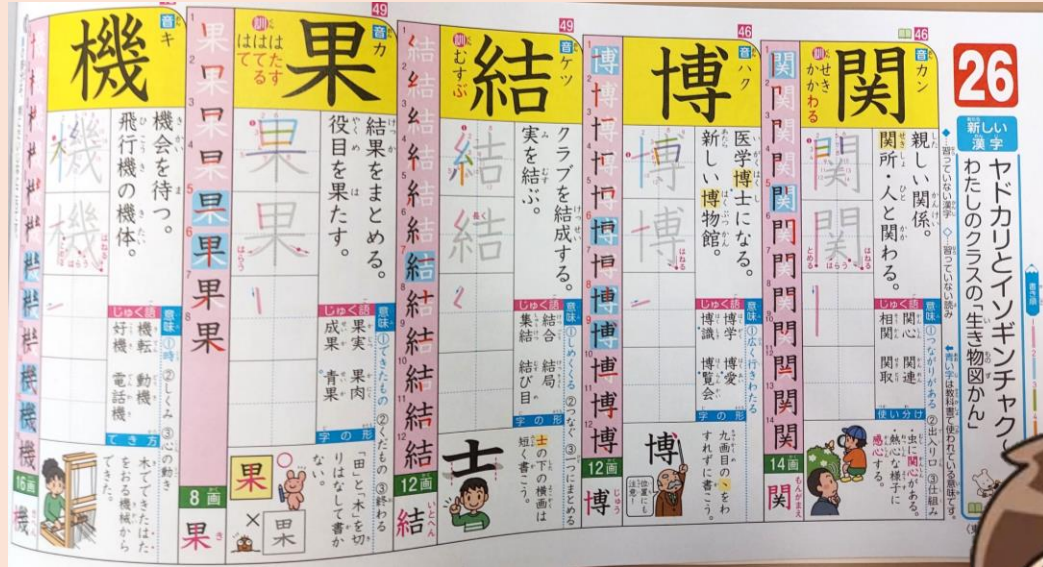 26
新しい漢字
ヤドカリとイソギンチャク～
わたしのクラスの「生き物図かん」
◆習っていない漢字 ◇習っていない読み
←青い字は教科書で使われている意味です。
書き順
46
音カン
訓せき
かかわる
関
親しい関係。
関所・人と関わる。
意味①つながりがある ②出入り口 ③仕組み
じゅく語
関心 関連
相関 関取
使い分け
・虫に関心がある。
・熱心な様子に
感心する。
はねる
はらう
とめる
14画
関
もんがまえ
46
音ハク
博
医学博士になる。
新しい博物館。
意味①広く行きわたる
じゅく語
博学 博愛
博識 博覧会
字の形
九画目の「丶」をわ
すれずに書こう。
博
位置にも
注意!
はねる
12画
博
じゅう
49
音ケツ
訓むすぶ
結
クラブを結成する。
実を結ぶ。
意味①しめくくる ②つなぐ ③一つにまとめる
じゅく語
結合 結局
集結 結び目
字の形
士の下の横画は
短く書こう。
士
長く
12画
結
いとへん
49
音カ
訓はたす
はてる
はて
果
結果をまとめる。
役目を果たす。
意味①できたもの ②くだもの ③終わる
じゅく語
果実 果肉
成果 青果
字の形
「田」と「木」を切
りはなして書か
ない。
果
果
はらう
8画
果
き
音キ
機
機会を待つ。
飛行機の機体。
意味①時 ②しくみ ③心の動き
じゅく語
機転 動機
好機 電話機
でき方
木でできたはた
をおる機械から
できた。
はねる
はらう
16画
機